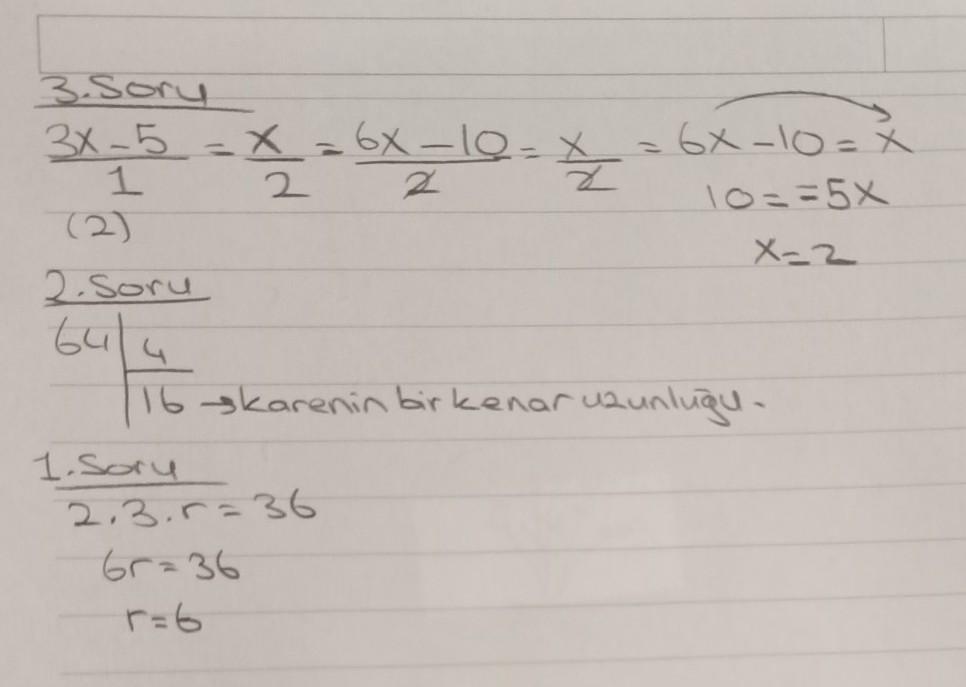 3. Soru
3x-5/1 = x/2 = 6x-10/2 = x/2 = 6x-10 = x
(2)
10 = = 5x
x = 2
2. Soru
64 | 4
16 → karenin bir kenar uzunluğu.
1. Soru
2.3.r = 36
6r = 36
r = 6